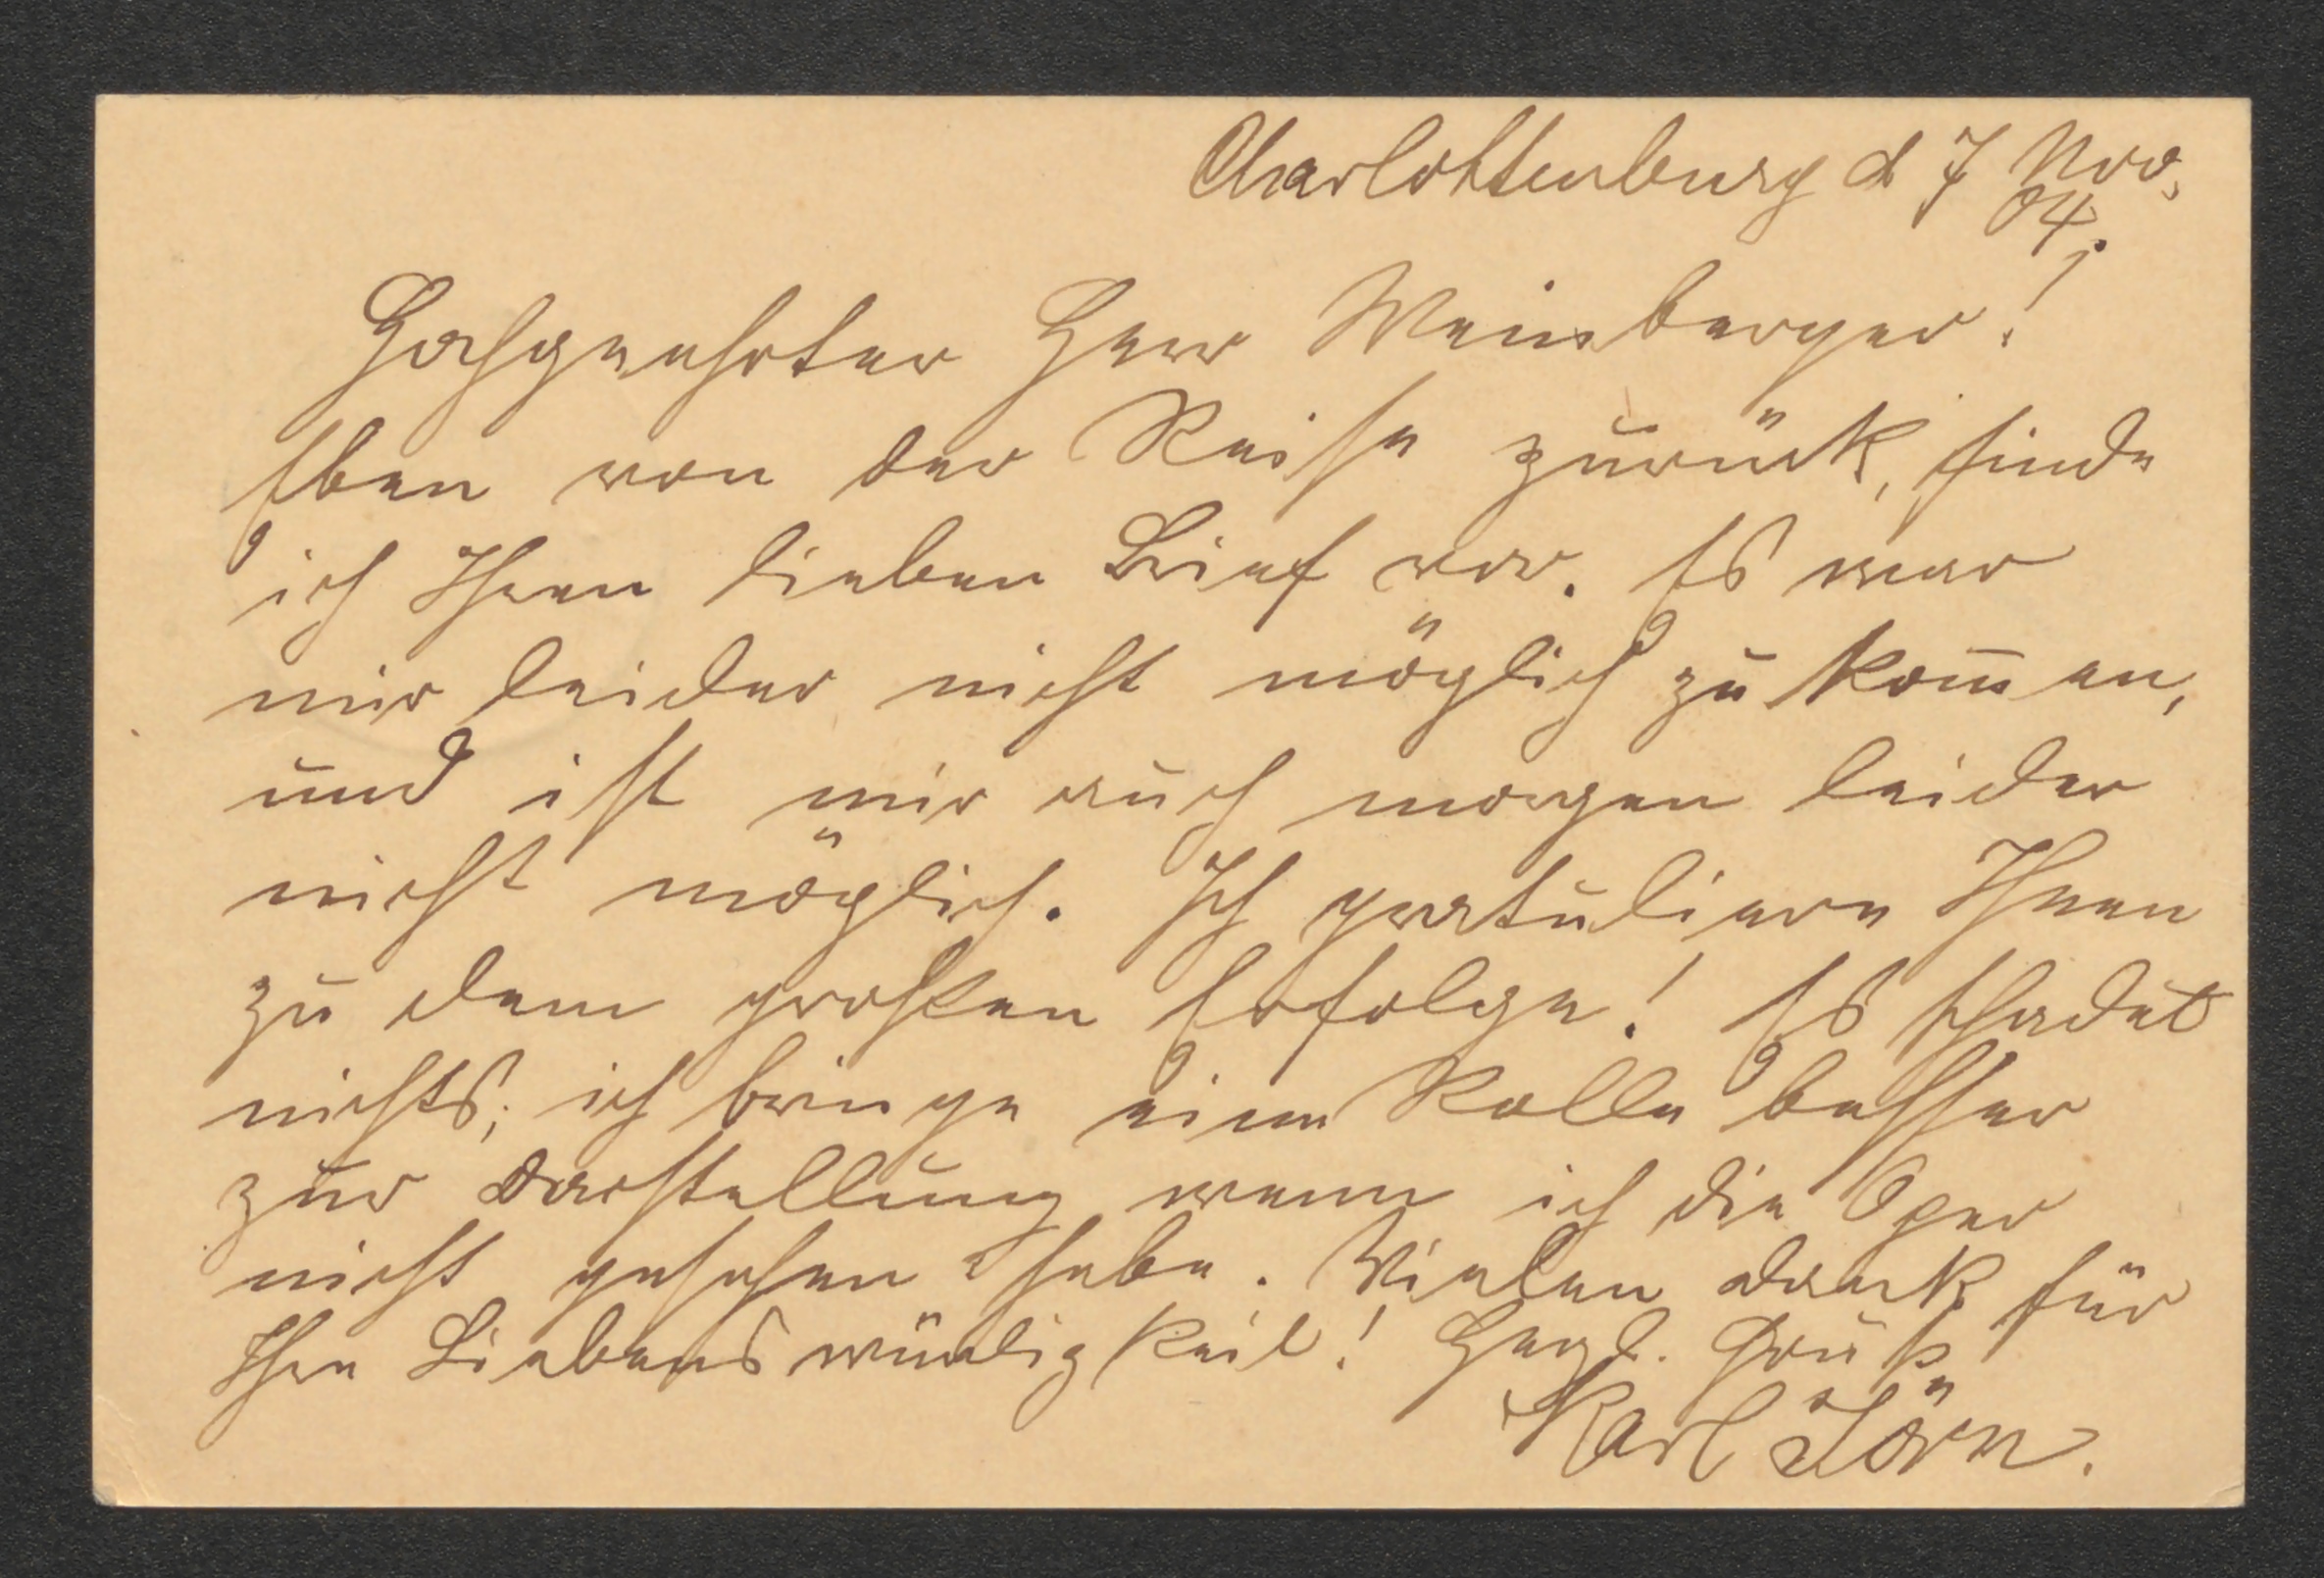 Charlottenburg d 7 Nov.
04.
Hochgeehrter Herr Weinberger!
Eben von der Reise zurück, finde
ich Ihren lieben Brief vor. Es war
mir leider nicht möglich zu kom̅en,
und ist mir auch morgen leider
nicht möglich. Ich gratuliere Ihnen
zu dem großen Erfolge! Es schadet
nichts, ich bringe eine Rolle besser
zur Darstellung wenn ich die Oper
nicht gesehen habe. Vielen Dank für
Ihre Liebenswürdigkeit! Herzl. Gruß
Karl Jörn.